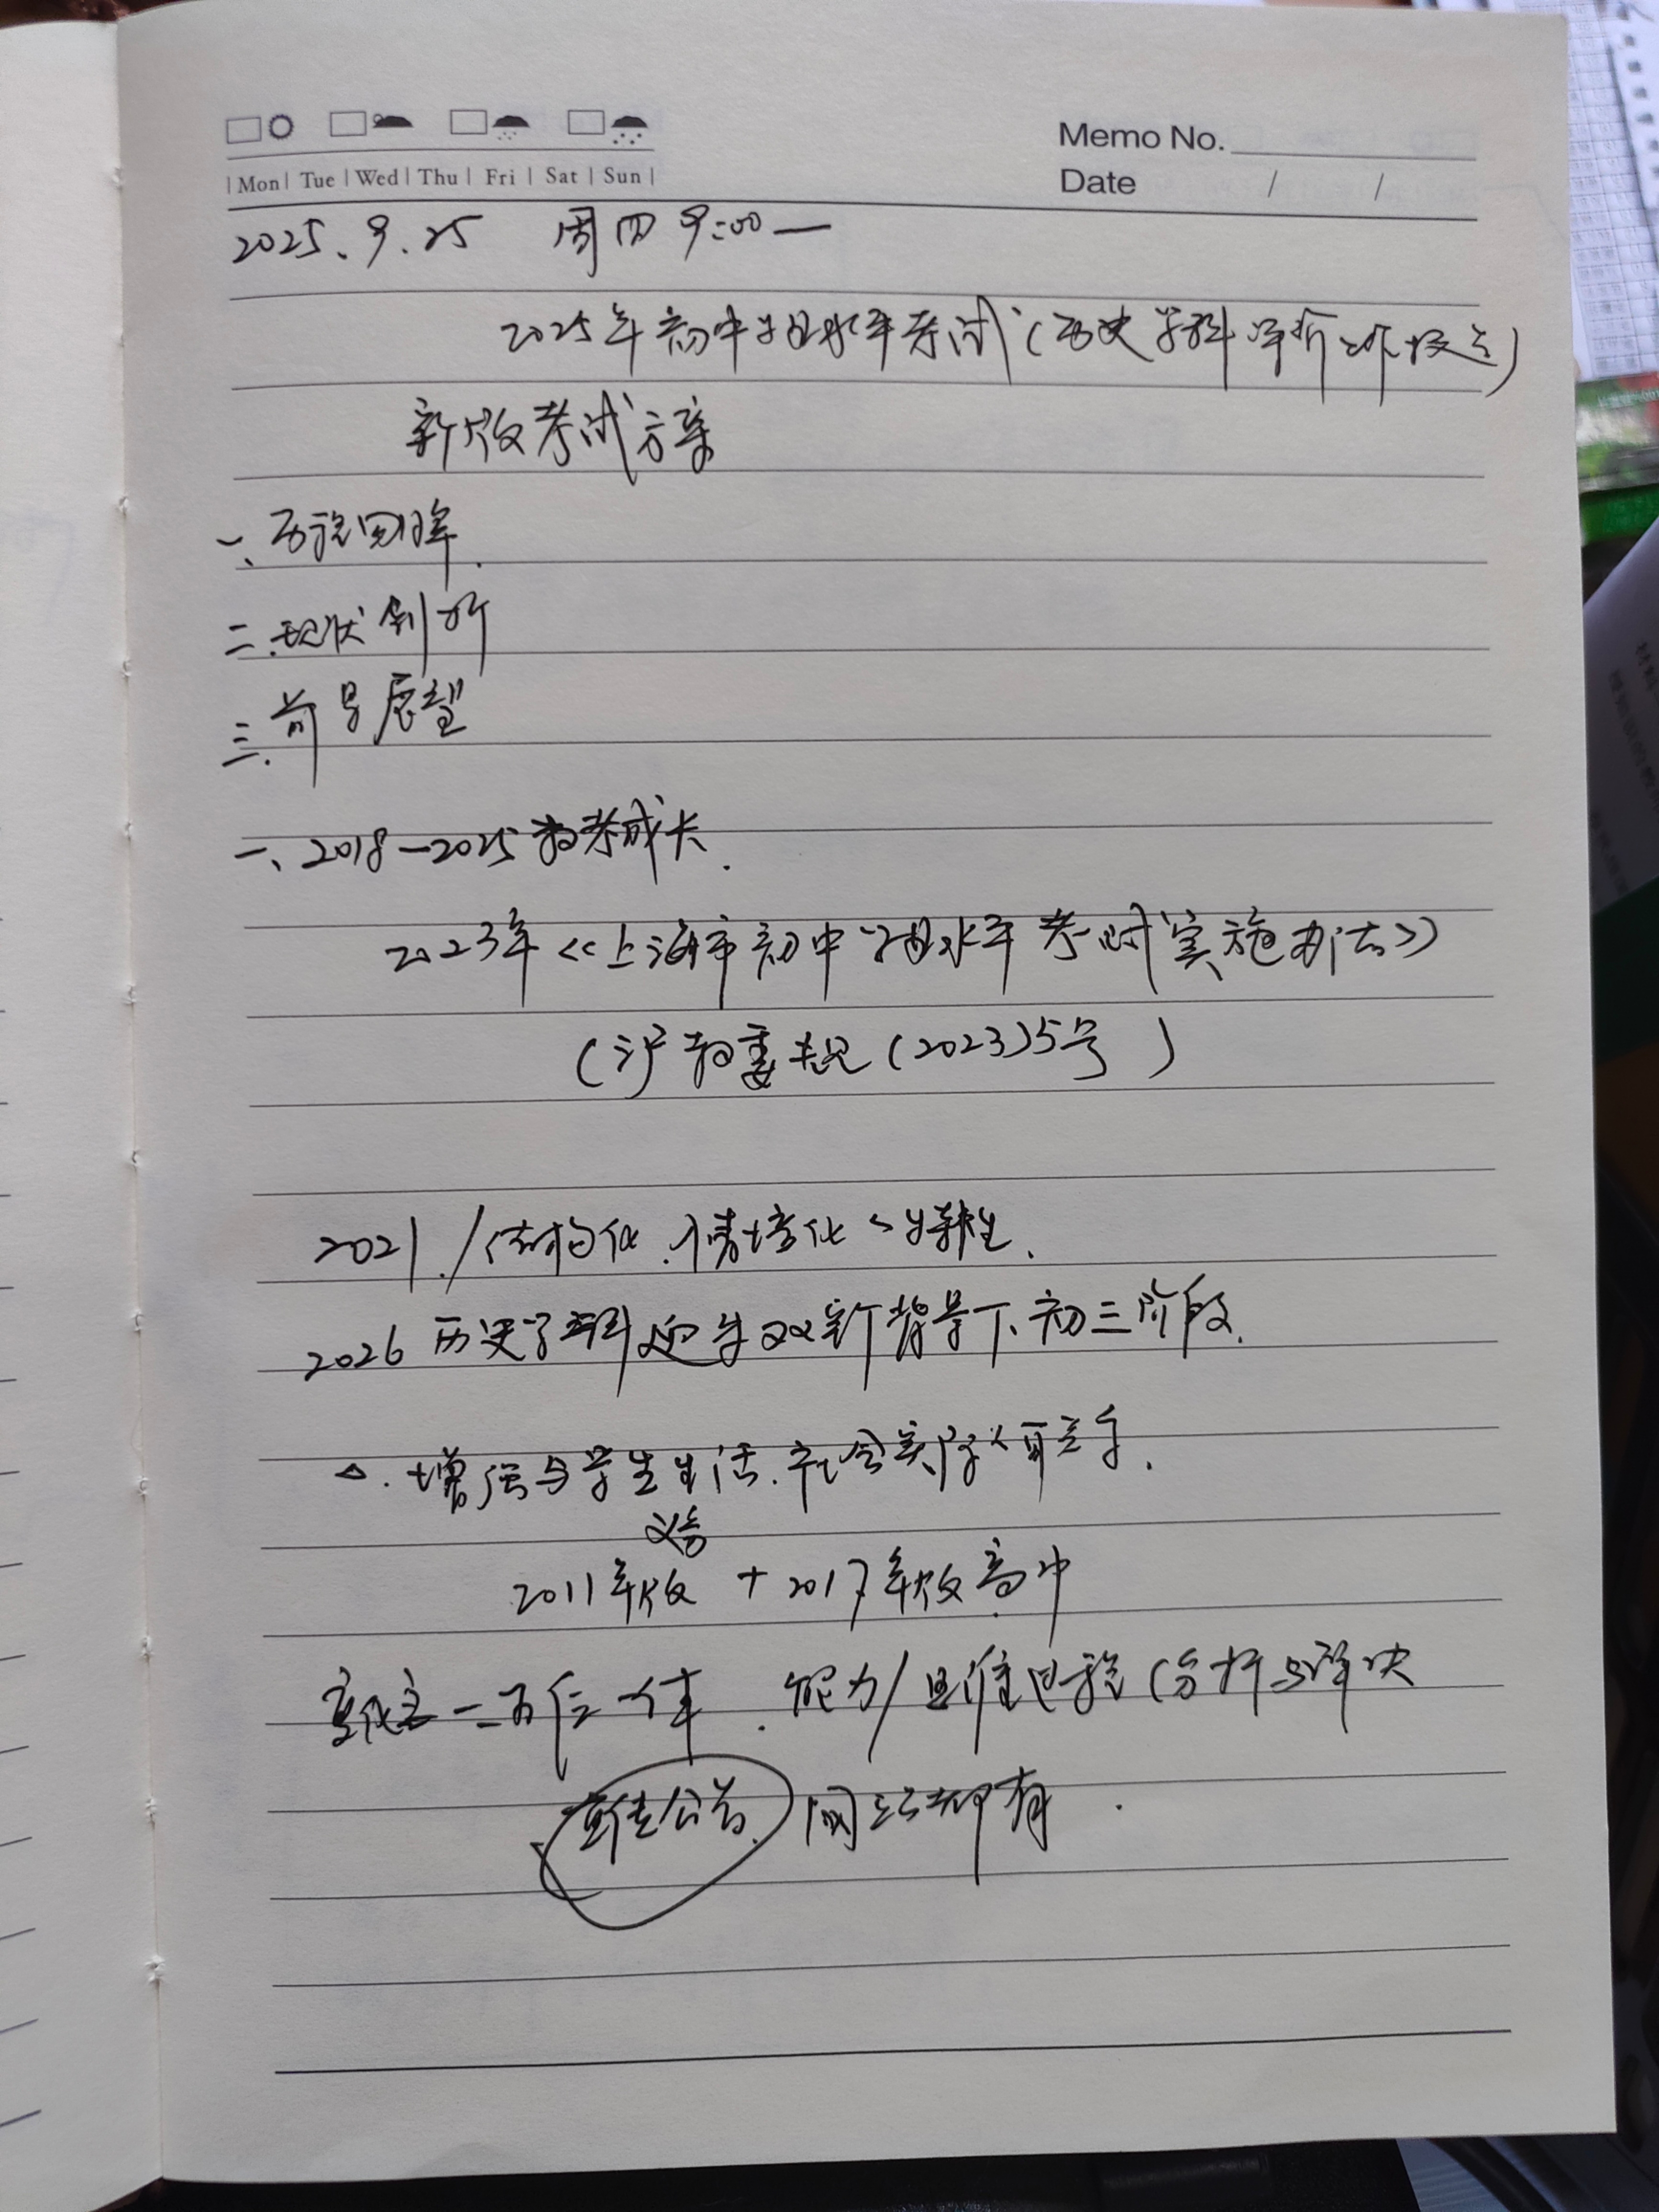 Memo No.
Mon Tue Wed Thu Fri Sat Sun
Date / /
2025.9.25 周四 9:00—
2025年初中学业水平考试(历史学科评价
新版考试方案
一、历程回眸.
二.现状剖析
三.前景展望
一、2018—2025 教考成长.
2023年《上海市初中学业水平考试实施办法》
(沪教委规(2023)5号)
2021./结构化.情境化、
2026 历史学科迎来双新背景下、初三阶段.
△.增强与学生生活.社会实际的联系.
义务
2011年版 + 2017年版高中
能力/思维过程(分析与解决
网站都有.